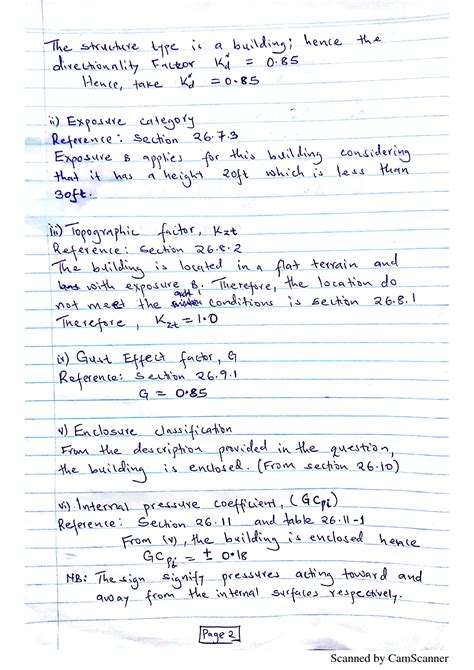 The structure type is a building; hence the
directionality Factor Kd = 0.85
Hence, take Kd = 0.85
ii) Exposure category
Reference: Section 26.7.3
Exposure B applies for this building considering
that it has a height 20ft which is less than
30ft.
iii) Topographic factor, Kzt
Reference: Section 26.8.2
The building is located in a flat terrain and
with exposure B. Therefore, the location do
not meet the conditions is section 26.8.1
Therefore, Kzt = 1.0
iv) Gust Effect factor, G
Reference: Section 26.9.1
G = 0.85
v) Enclosure classification
From the description provided in the question,
the building is enclosed. (From section 26.10)
vi) Internal pressure coefficient, (GCpi)
Reference: Section 26.11 and table 26.11-1
From (v), the building is enclosed hence
GCpi = ± 0.18
NB: The sign signify pressures acting toward and
away from the internal surfaces respectively.
Page 2
Scanned by CamScanner